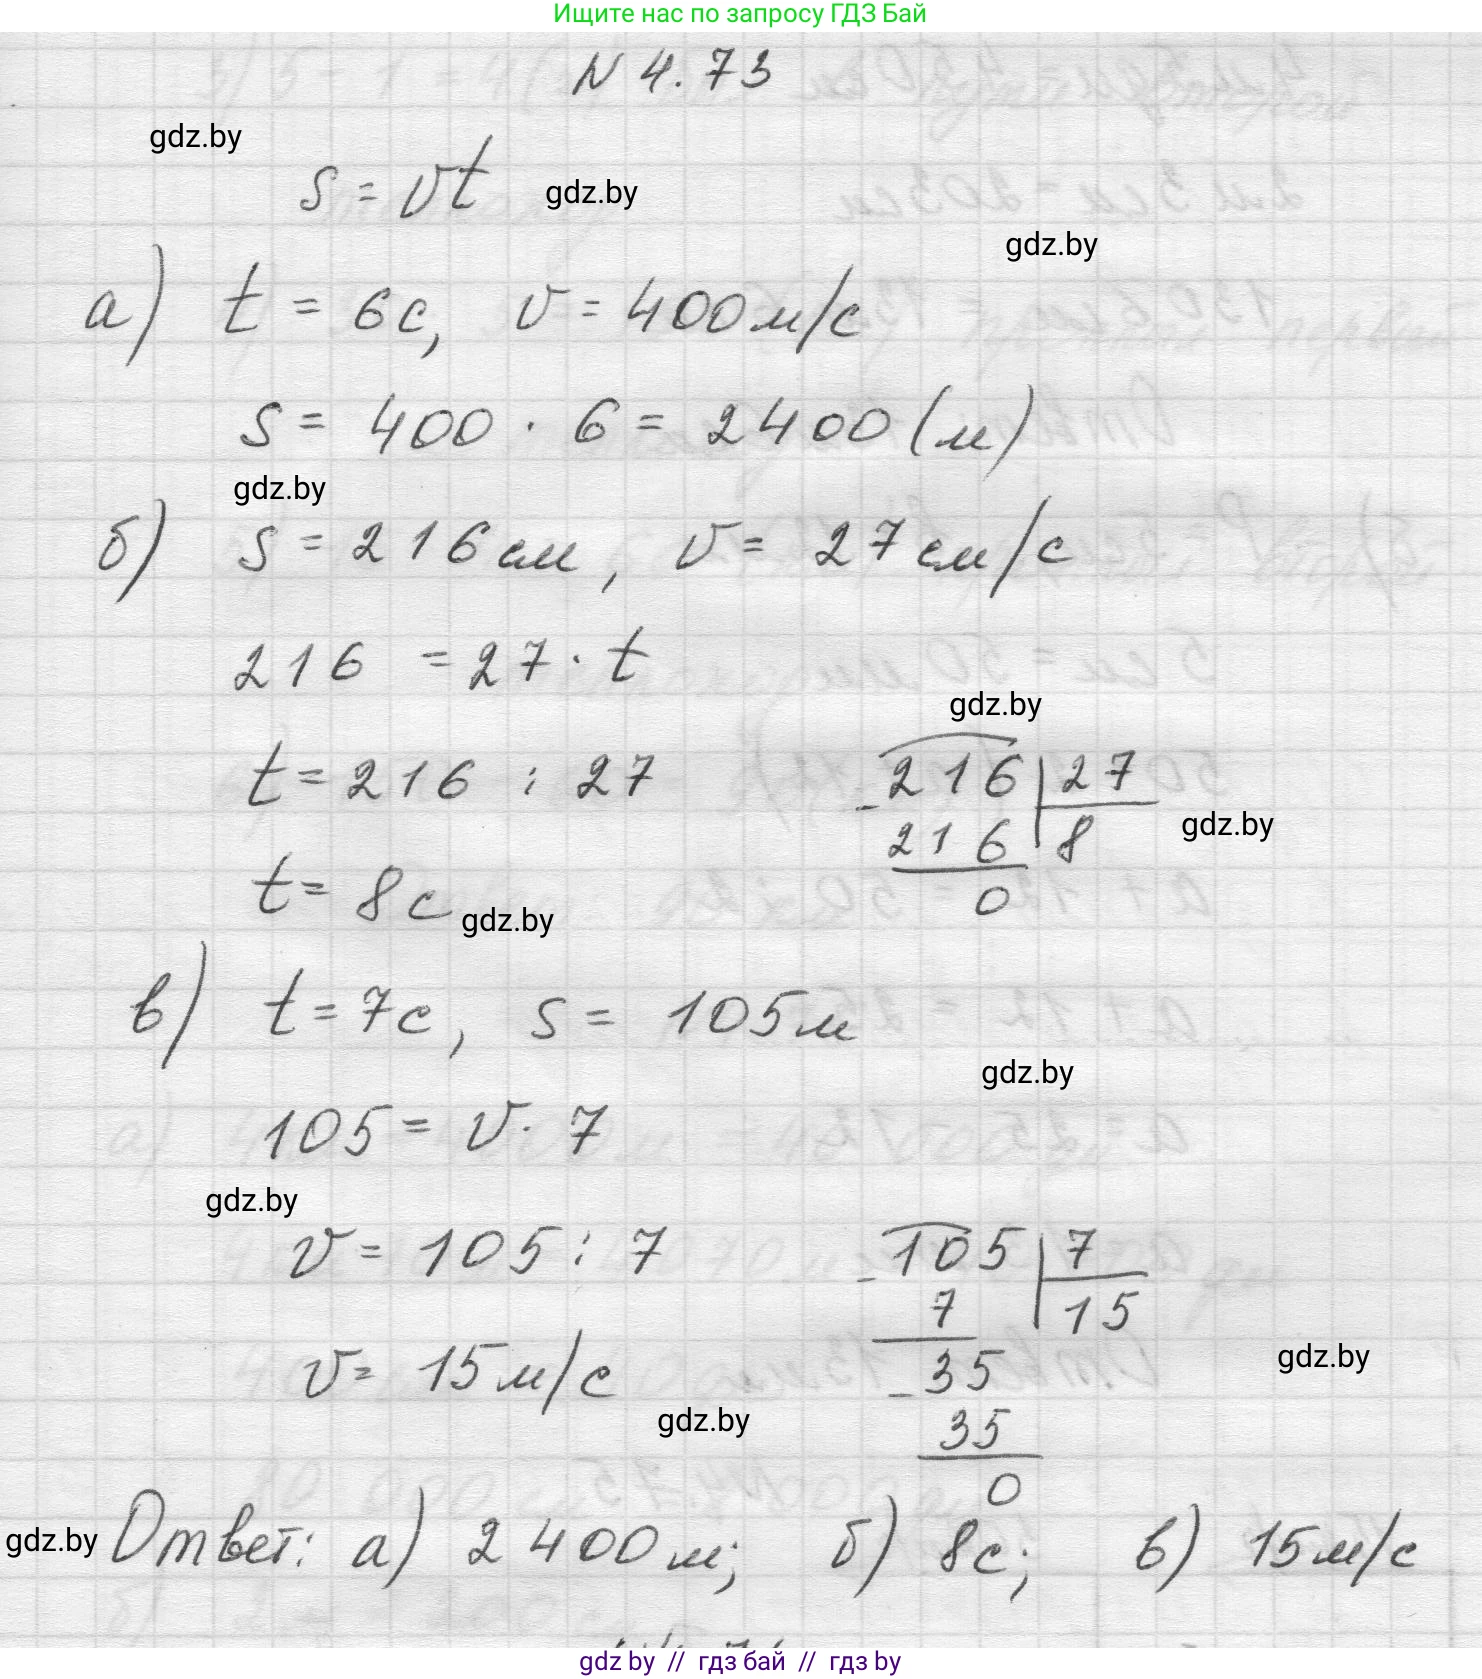 Ищите нас по запросу ГДЗ Бай
N 4.73
gdz.by
s = vt gdz.by
gdz.by
а) t = 6с, v = 400м/с
s = 400 · 6 = 2400 (м)
gdz.by
б) s = 216 см, v = 27 см/с
216 = 27 · t
gdz.by
t = 216 : 27
- 216 | 27
216 | 8
0
gdz.by
t = 8с gdz.by
в) t = 7с, s = 105м
gdz.by
105 = v · 7
gdz.by
v = 105 : 7
- 105 | 7
7 | 15
- 35
35
0
v = 15 м/с
gdz.by
gdz.by
gdz.by Ответ: а) 2400м; б) 8с; в) 15м/с
gdz by // гдз бай // гдз by